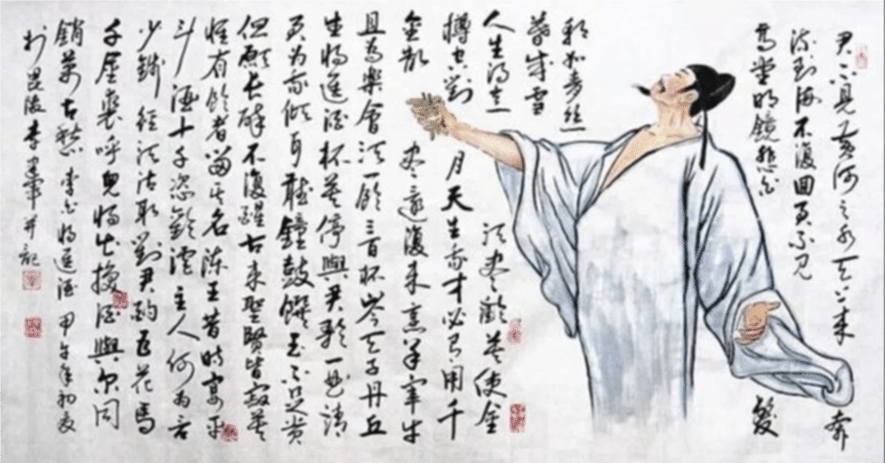 君不見黃河之水天上來奔
流到海不復回君不見
高堂明鏡悲白髮
朝如青丝
暮成雪
人生得意須盡歡莫使金
樽空對月天生我才必有用千
金散盡還復来烹羊宰牛
且為樂會須一飲三百杯岑夫子丹丘
生將進酒杯莫停與君歌一曲請
君为我傾耳聽鐘鼓饌玉不足貴
但願長醉不復醒古来聖賢皆寂莫
惟有飲者留其名陳王昔時宴平
斗酒十千恣歡謔主人何為言
少錢徑須沽取對君酌五花馬
千金裘呼兒將出換酒與尔同
銷萬古愁 李白將進酒 甲午年初夏
於毘陵李軍并記